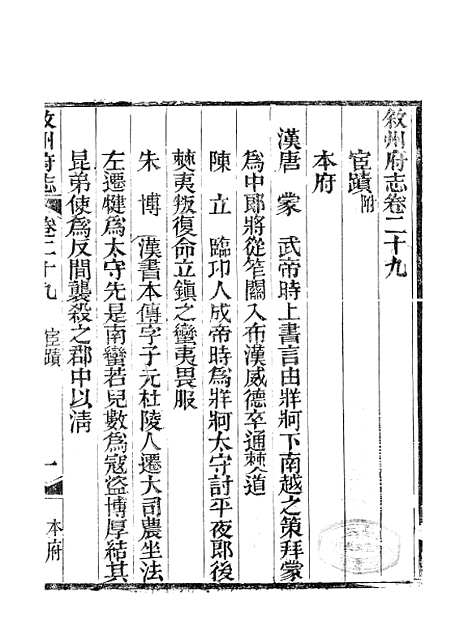 敘州府志卷二十九
宦蹟附
本府
漢唐 蒙 武帝時上書言由牂牁下南越之策拜蒙
為中郎將從笮關入布漢威德卒通僰道
陳 立 臨卭人成帝時為牂牁太守討平夜郎後
僰夷叛復命立鎮之蠻夷畏服
朱 博 漢書本傳字子元杜陵人遷大司農坐法
左遷犍為太守先是南蠻若兒數為寇盜博厚結其
昆弟使為反間襲殺之郡中以清
敘州府志 卷二十九 宦蹟 一 本府